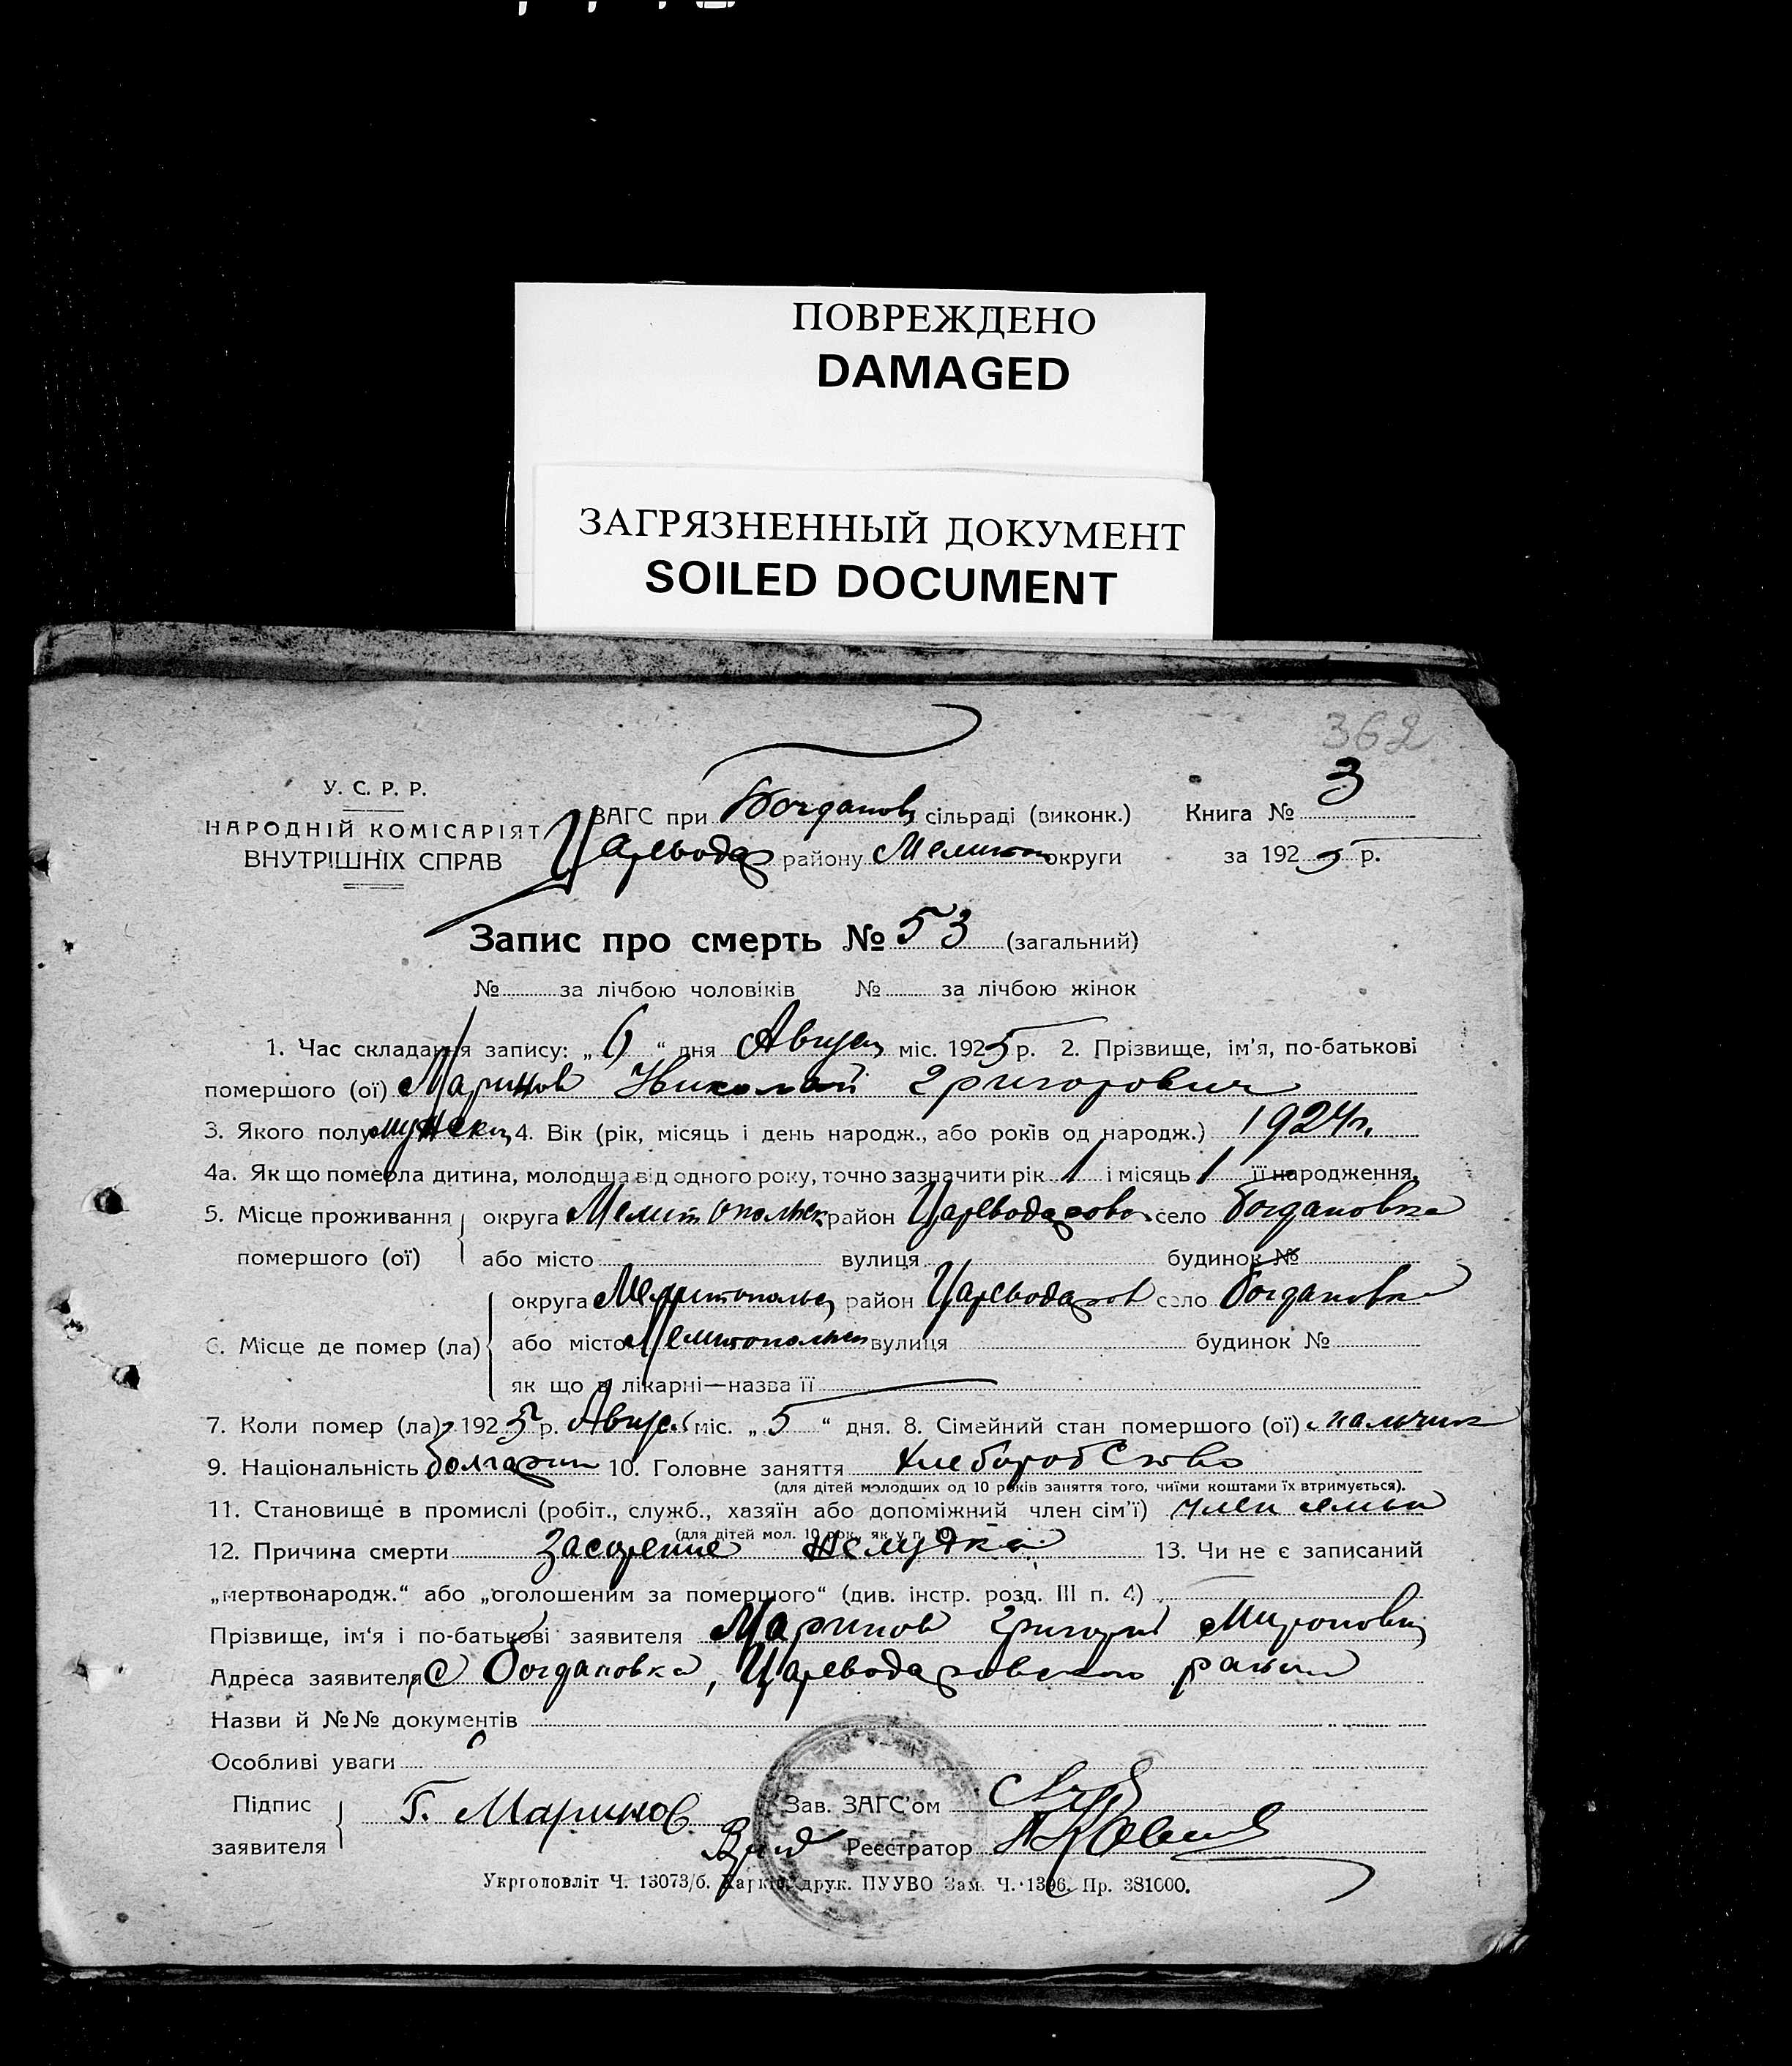 ПОВРЕЖДЕНО
DAMAGED
ЗАГРЯЗНЕННЫЙ ДОКУМЕНТ
SOILED DOCUMENT
362
У. С. Р. Р.
НАРОДНІЙ КОМІСАРІЯТ
ВНУТРІШНІХ СПРАВ
ЗАГС при Богданов сільраді (виконк.) Книга № 3
Царевода району Мелитоп округи за 1925 р.
Запис про смерть № 53 (загальний)
№ за лічбою чоловіків № за лічбою жінок
1. Час складання запису: „6“ дня Август міс. 1925 р. 2. Прізвище, ім'я, по-батькові
помершого (ої) Маринов Николай Григорович
3. Якого полу мужск 4. Вік (рік, місяць і день народж., або років од народж.) 1924 г.
4а. Як що померла дитина, молодша від одного року, точно зазначити рік 1 і місяць 1 її народження.
5. Місце проживання округа Мелитопольск район Цареводаровск село Богдановка
помершого (ої) або місто вулиця будинок №
округа Мелитопольс район Цареводаров село Богдановка
6. Місце де помер (ла) або місто Мелитопольск вулиця будинок №
як що в лікарні—назва її
7. Коли помер (ла) 1925 р. Август міс. „5“ дня. 8. Сімейний стан помершого (ої) мальчик
9. Національність болгарин 10. Головне заняття хлебороб Ство
(для дітей молодших од 10 років заняття того, чиїми коштами їх втримується).
11. Становище в промислі (робіт., служб., хазяїн або допоміжний член сім'ї) член семьи
(для дітей мол. 10 рок., як у п. 10)
12. Причина смерти Засорение желудка 13. Чи не є записаний
„мертвонародж.“ або „оголошеним за помершого“ (див. інстр. розд. III п. 4)
Прізвище, ім'я і по-батькові заявителя Маринов Григорий Миронович
Адреса заявителя С Богдановка, Цареводаровского района
Назви й №№ документів
Особливі уваги
Підпис
заявителя Г. Маринов Зав. ЗАГС'ом
Врид Реєстратор
Укрголовліт Ч. 13073/б. Харків, друк. ПУУВО Зам. Ч. 1396. Пр. 381000.